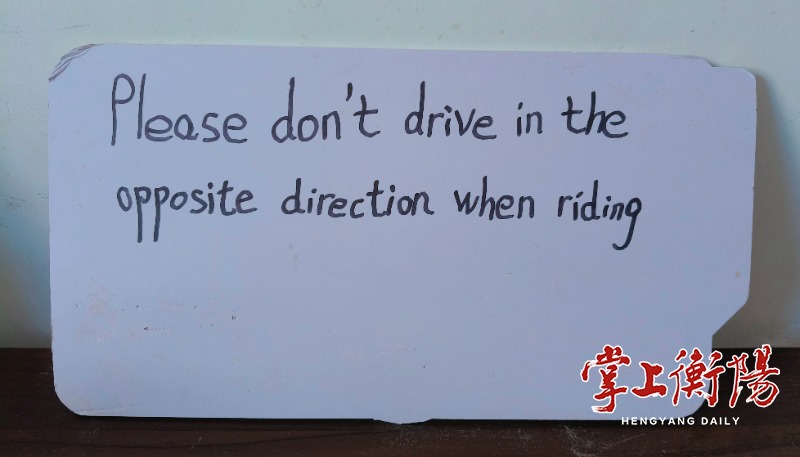 Please don't drive in the
opposite direction when riding
掌上衡陽
HENGYANG DAILY